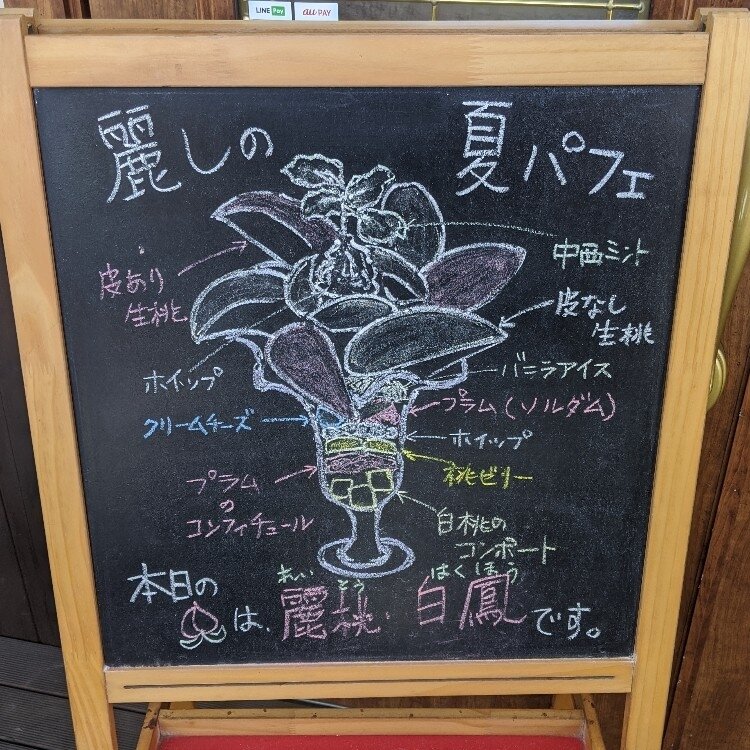 LINE Pay
au PAY
麗しの 夏パフェ
中西ミント
皮あり
生桃
皮なし
生桃
ホイップ
バニラアイス
クリームチーズ
プラム(ソルダム)
ホイップ
桃ゼリー
プラム
の
コンフィチュール
白桃の
コンポート
れい とう はくほう
本日の
は、麗桃・白鳳です。